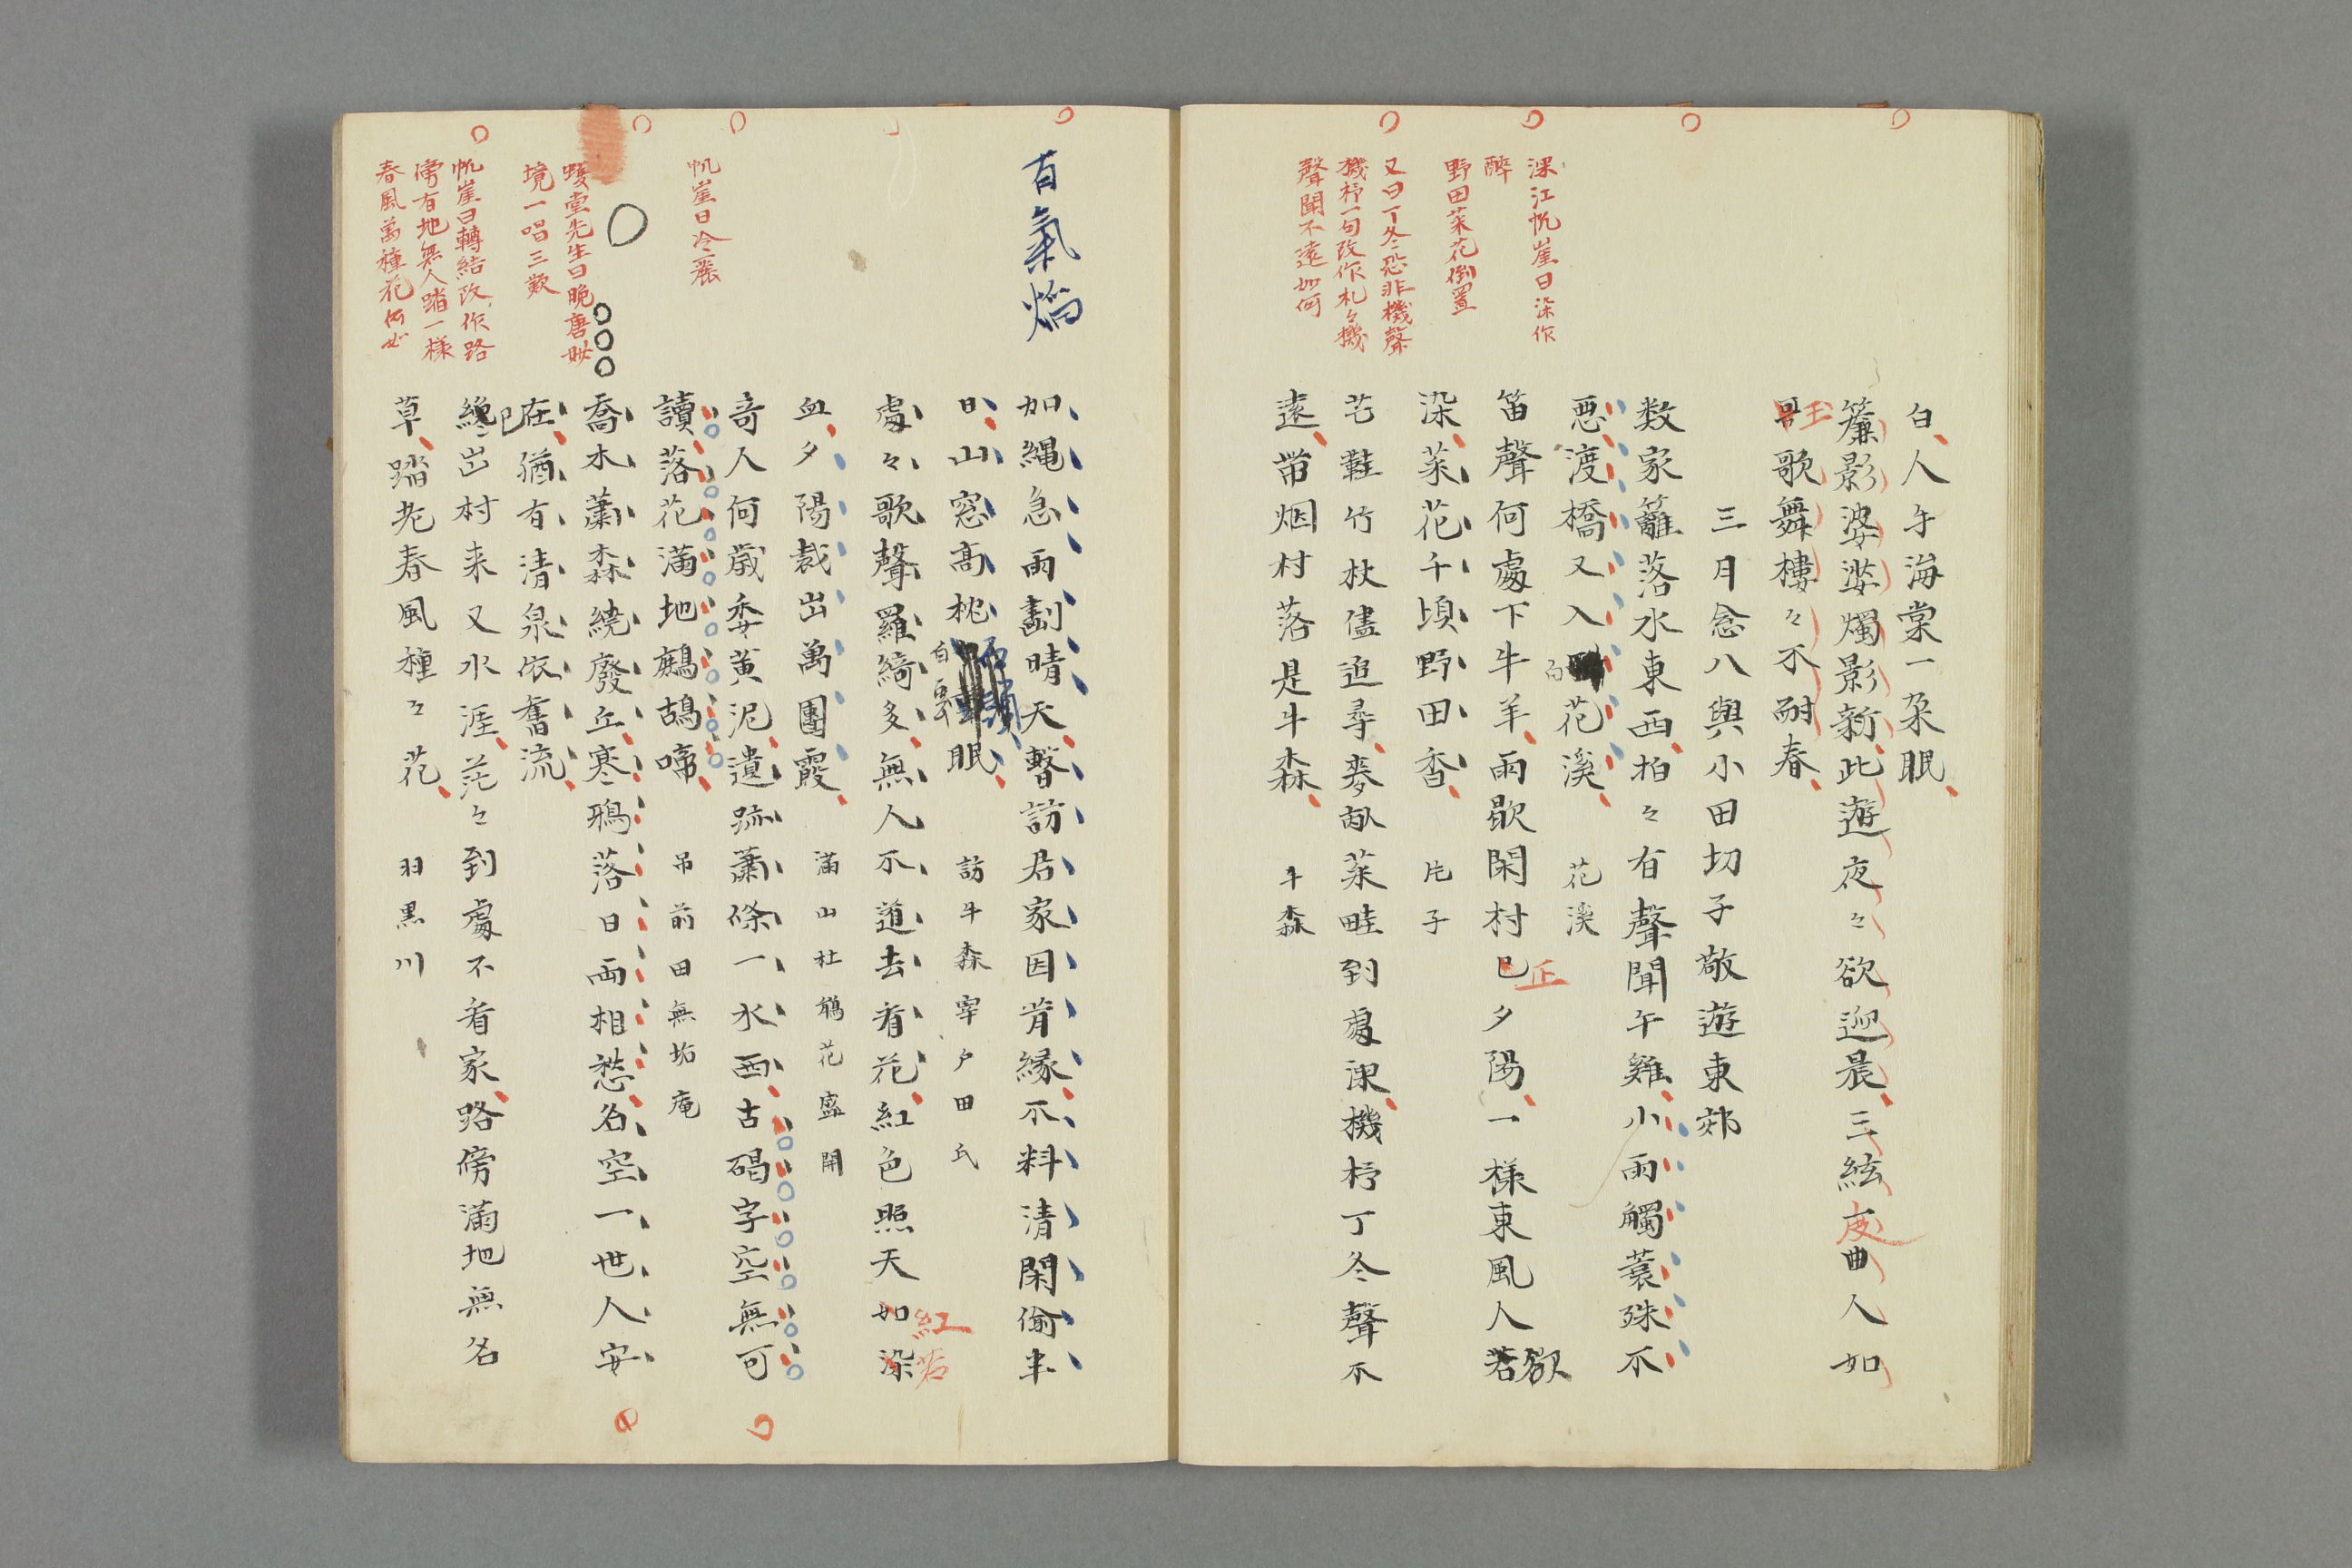 白人午海棠一朶眠
簾影婆娑燭影新此遊夜々欲迎晨三絃夜曲人如
玉歌舞樓々不耐春
三月念八與小田切子敬遊東郊
数家籬落水東西柏々有聲聞午雞小雨觸蓑殊不
悪渡橋又入花溪 花溪
笛聲何處下牛羊雨歇閑村已夕陽一樣東風人欲
染菜花千頃野田香 片子
芒鞋竹杖儘追尋麥畝菜畦到處深機杼丁冬聲不
遠帯烟村落是牛森 牛森
深江帆崖曰染作
醉
野田菜花倒置
又曰丁冬恐非機聲
機杼一句改作札々機
聲聞不遠如何
有氣焔
如縄急雨劃晴天暫訪君家因肯縁不料清閑偸半
日山窓高枕眠 訪牛森宰戸田氏
處々歌聲羅綺多無人不道去看花紅色照天紅若
血夕陽裁出萬團霞 滿山杜鵑花盛開
竒人何歳委黄泥遺跡蕭條一水西古碣字空無可
讀落花滿地鷓鴣啼 吊前田無垢庵
喬木蕭森繞廢丘寒鴉落日両相愁名空一世人安
在猶有清泉依舊流
纔出村来又水涯茫々到處不看家路傍滿地無名
草踏老春風種々花 羽黒川
帆崖曰冷麗
堂先生曰晩唐妙
境一唱三歎
帆崖曰轉結改作路
傍有地無人踏一樣
春風萬種花何如